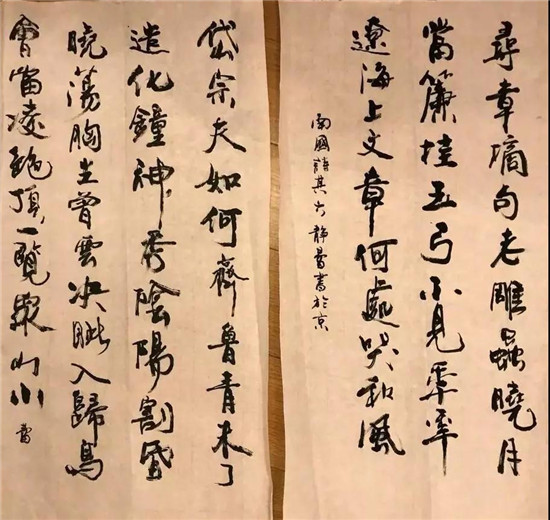 尋章摘句老雕蟲曉月
當簾挂玉弓不見年年
遼海上文章何處哭秋風
南國詩其六 静書於京
岱宗夫如何齊魯青未了
造化鐘神秀陰陽割昏
曉蕩胸生曾雲決眦入歸鳥
會當凌絕頂一覽衆山小